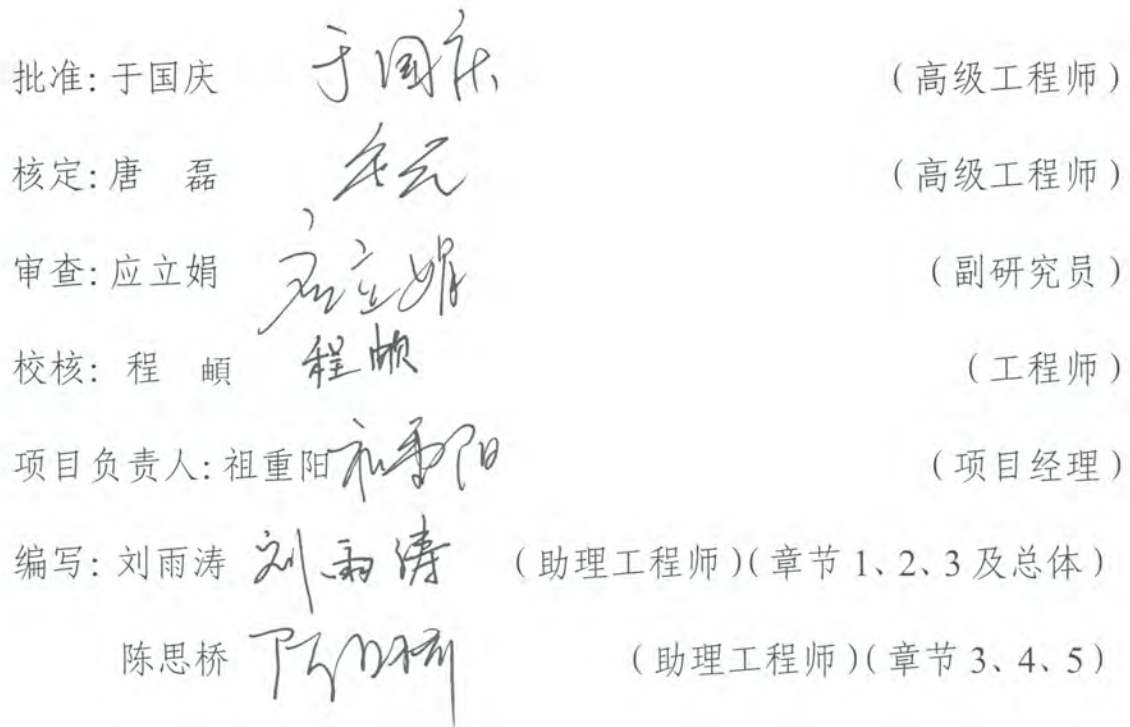 批准: 于国庆 于国庆 (高级工程师)
核定: 唐 磊 (高级工程师)
审查: 应立娟 应立娟 (副研究员)
校核: 程 頔 程頔 (工程师)
项目负责人: 祖重阳 祖重阳 (项目经理)
编写: 刘雨涛 刘雨涛 (助理工程师)(章节 1、2、3 及总体)
陈思桥 陈思桥 (助理工程师)(章节 3、4、5)